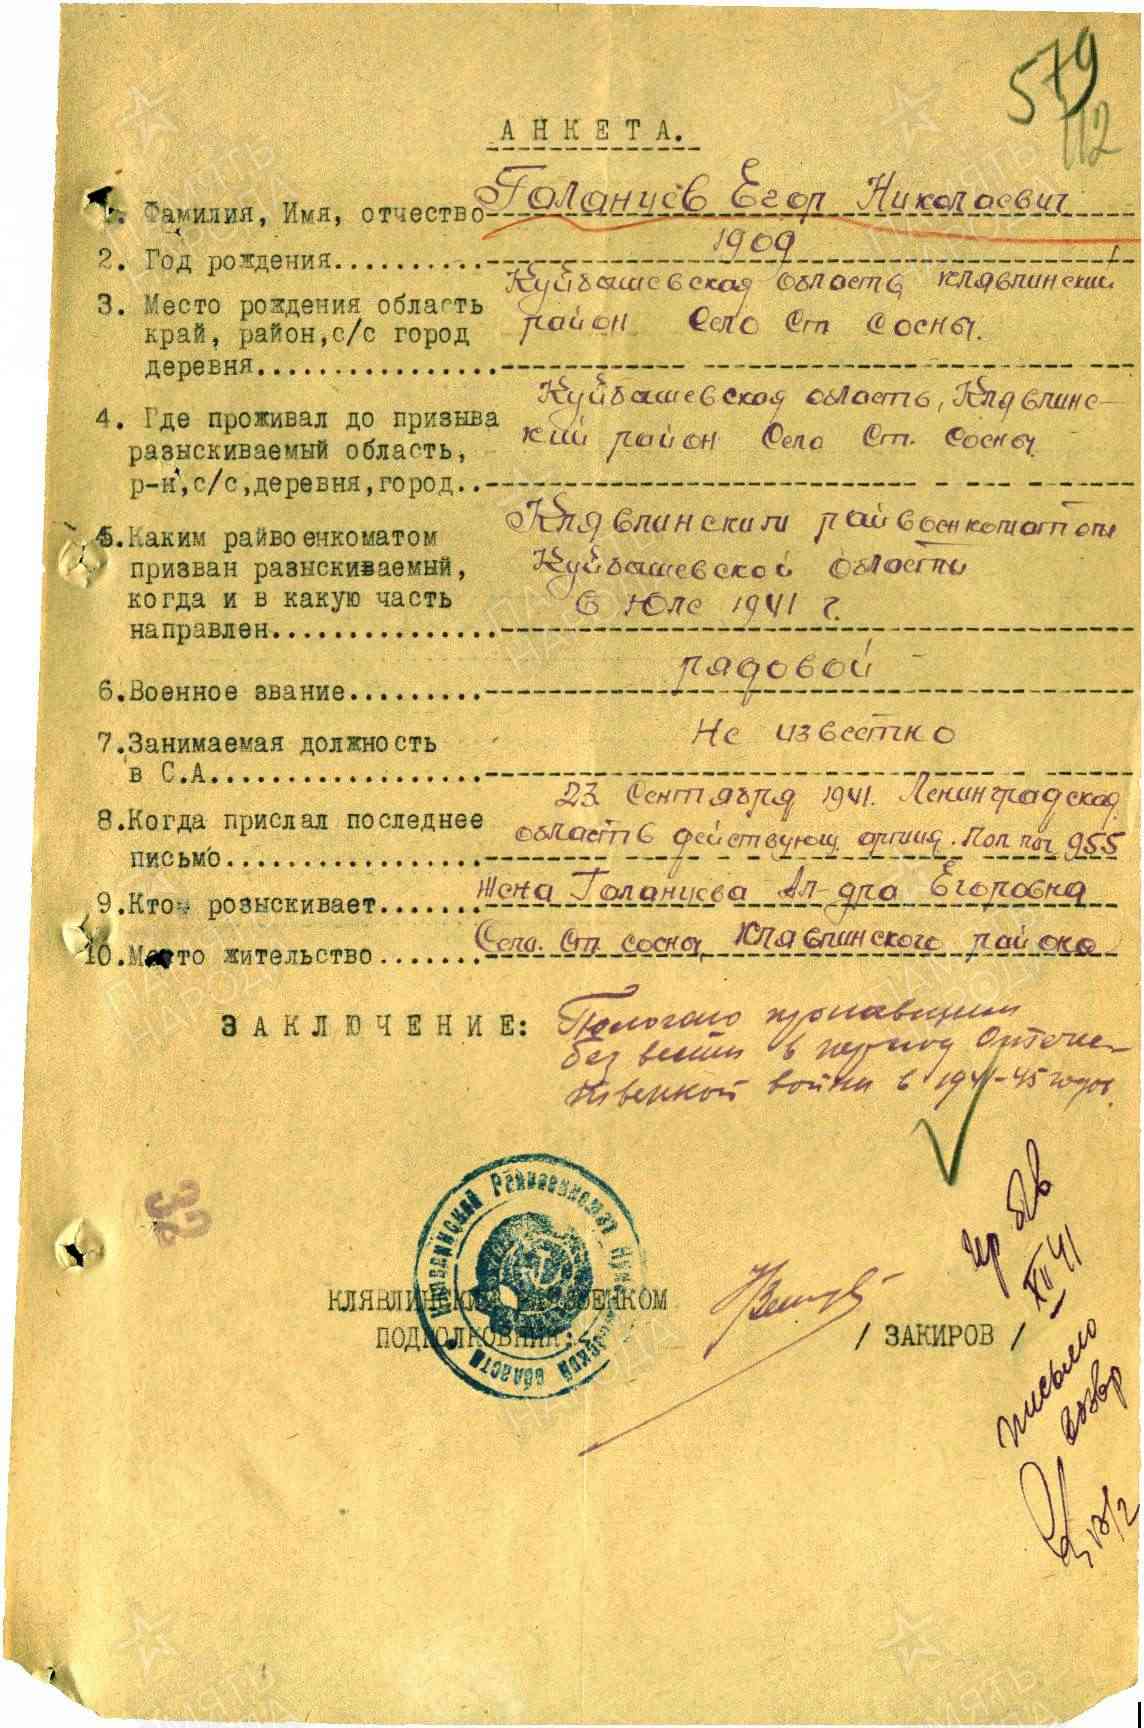 579
112
АНКЕТА.
1. Фамилия, Имя, отчество Галанцев Егор Николаевич
2. Год рождения.......... 1909
3. Место рождения область Куйбышевская область, Клявлинский
край, район,с/с город район Село Ст Сосны.
деревня................
4. Где проживал до призыва Куйбышевская область, Клявлинс-
разыскиваемый область, кий район Село Ст. Сосны
р-н,с/с,деревня,город..
5.Каким райвоенкоматом Клявлинским райвоенкоматом
призван разыскиваемый, Куйбышевской области
когда и в какую часть в Юле 1941 г.
направлен...............
6.Военное звание......... рядовой
7.Занимаемая должность Не известно
в С.А..................
8.Когда прислал последнее 23 Сентября 1941. Ленинградская
письмо................. область действующ армия. Пол поч 955
9.Кто розыскивает....... Жена Галанцева Ал-дра Егоровна
10.Место жительство....... Село. Ст сосны, Клявлинского района
ЗАКЛЮЧЕНИЕ: Полагаю пропавшим
без вести в период Отече-
ственной войны в 1941-45 годов.
32
Клявлинский Райвоенкомат Куйбышевской области
КЛЯВЛИНСКИЙ РАЙВОЕНКОМ
ПОДПОЛКОВНИК:
/ ЗАКИРОВ /
пр б/в
XII 41
письмо
ПАМЯТЬ
НАРОДА